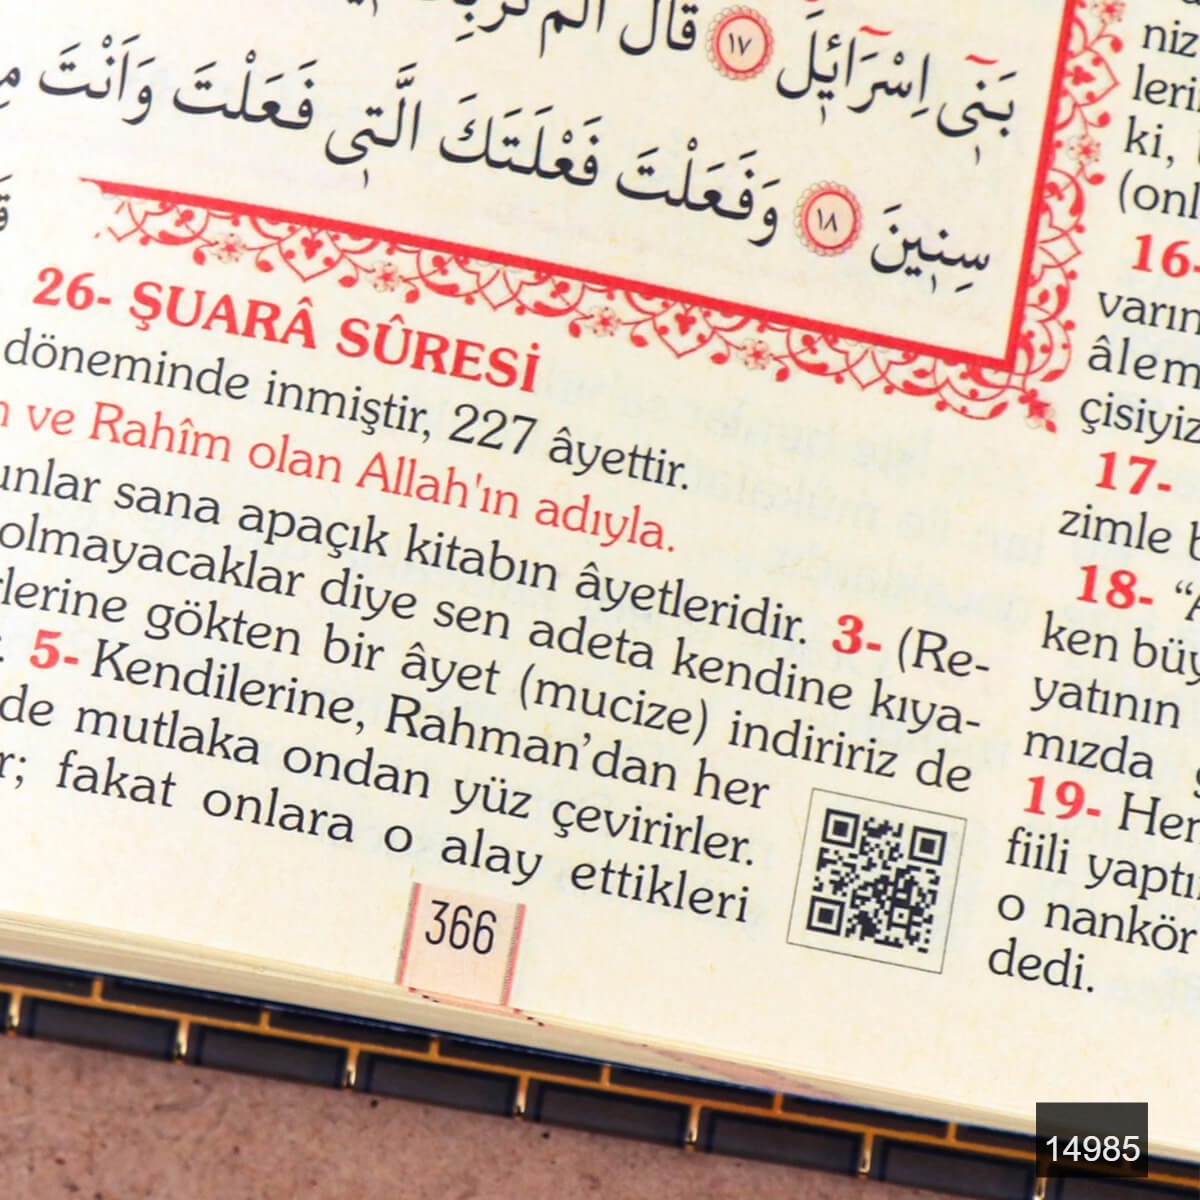 بَنٖٓي اِسْرَٓائٖلَ ﴿١٧﴾ قَالَ اَلَمْ
سِنٖينَ ﴿١٨﴾ وَفَعَلْتَ فَعْلَتَكَ الَّتٖي فَعَلْتَ وَاَنْتَ
26- ŞUARÂ SÛRESİ
döneminde inmiştir, 227 âyettir.
ve Rahîm olan Allah'ın adıyla.
unlar sana apaçık kitabın âyetleridir. 3- (Re-
olmayacaklar diye sen adeta kendine kıya-
rlerine gökten bir âyet (mucize) indiririz de
5- Kendilerine, Rahman’dan her
de mutlaka ondan yüz çevirirler.
r; fakat onlara o alay ettikleri
366
niz
leri
ki,
(onl
16-
varın
âlem
çisiyiz
17-
zimle b
18- “A
ken büy
yatının
mızda
19- Her
fiili yaptı
o nankör
dedi.
14985